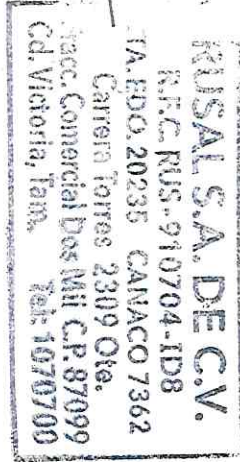 RUSAL S.A. DE C.V.
R.F.C. RUS-910704-ID8
TA. EDO. 20235 CANACO 7362
Carrera Torres 2309 Ote.
Fracc. Comercial Dos Mil C.P. 87099
Cd. Victoria, Tam. Tel: 1670700